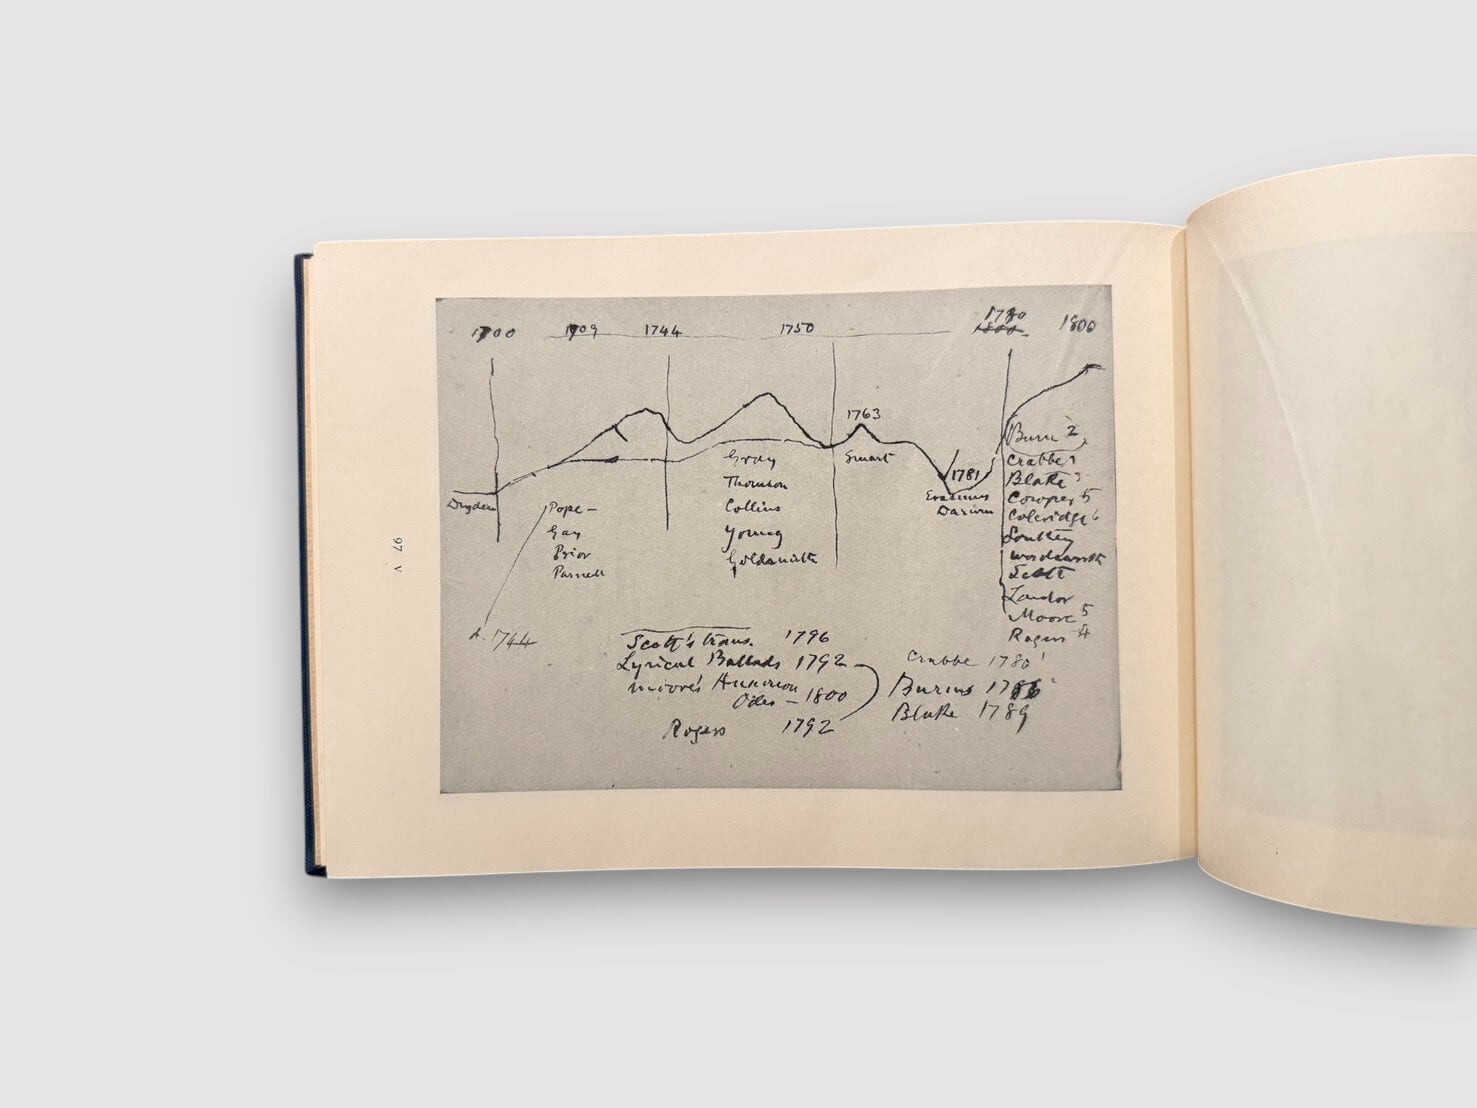 1700 1709 1744 1750 1780 1800
1800
1763
Smart
1781
Erasmus
Darwin
Dryden
Pope -
Gay
Prior
Parnell
d. 1744
Gray
Thomson
Collins
Young
Goldsmith
Burns 2
Crabbe 1
Blake 3
Cowper 5
Coleridge 6
Southey
Wordsworth
Scott
Landor
Moore 5
Rogers 4
Scott's trans. 1796
Lyrical Ballads 1792
Moore's Anacreon
Odes - 1800
Rogers 1792
Crabbe 1780 1
Burns 1786 2
Blake 1789
97 v